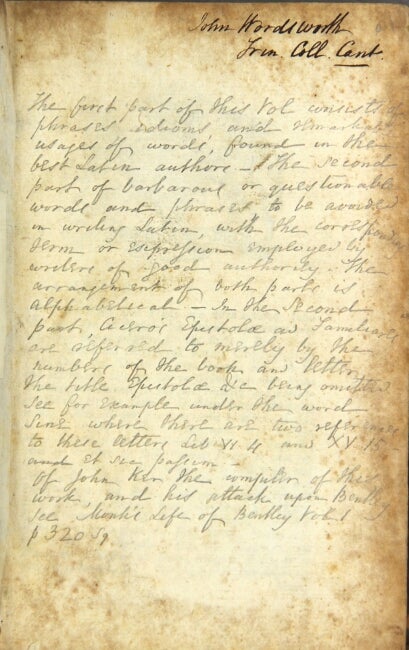 John Wordsworth
Trin. Coll. Cant.
The first part of this Vol consists of
phrases idioms and remarkable
usages of words, found in the
best Latin authors – The second
part of barbarous or questionable
words and phrases to be avoided
in writing Latin, with the corresponding
term or expression employed by
writers of good authority. The
arrangement of both parts is
alphabetical – In the Second
part, Cicero's Epistolæ ad Familiares
are referred to merely by the
numbers of the book and letter
the title Epistolæ &c being omitted
see for example under the word
Sine where there are two references
to these letters Lib and XV
and et sic passim –
Of John Ker the compiler of this
work, and his attack upon Bentley
see Monk's Life of Bentley Vol 1
p 320 sq